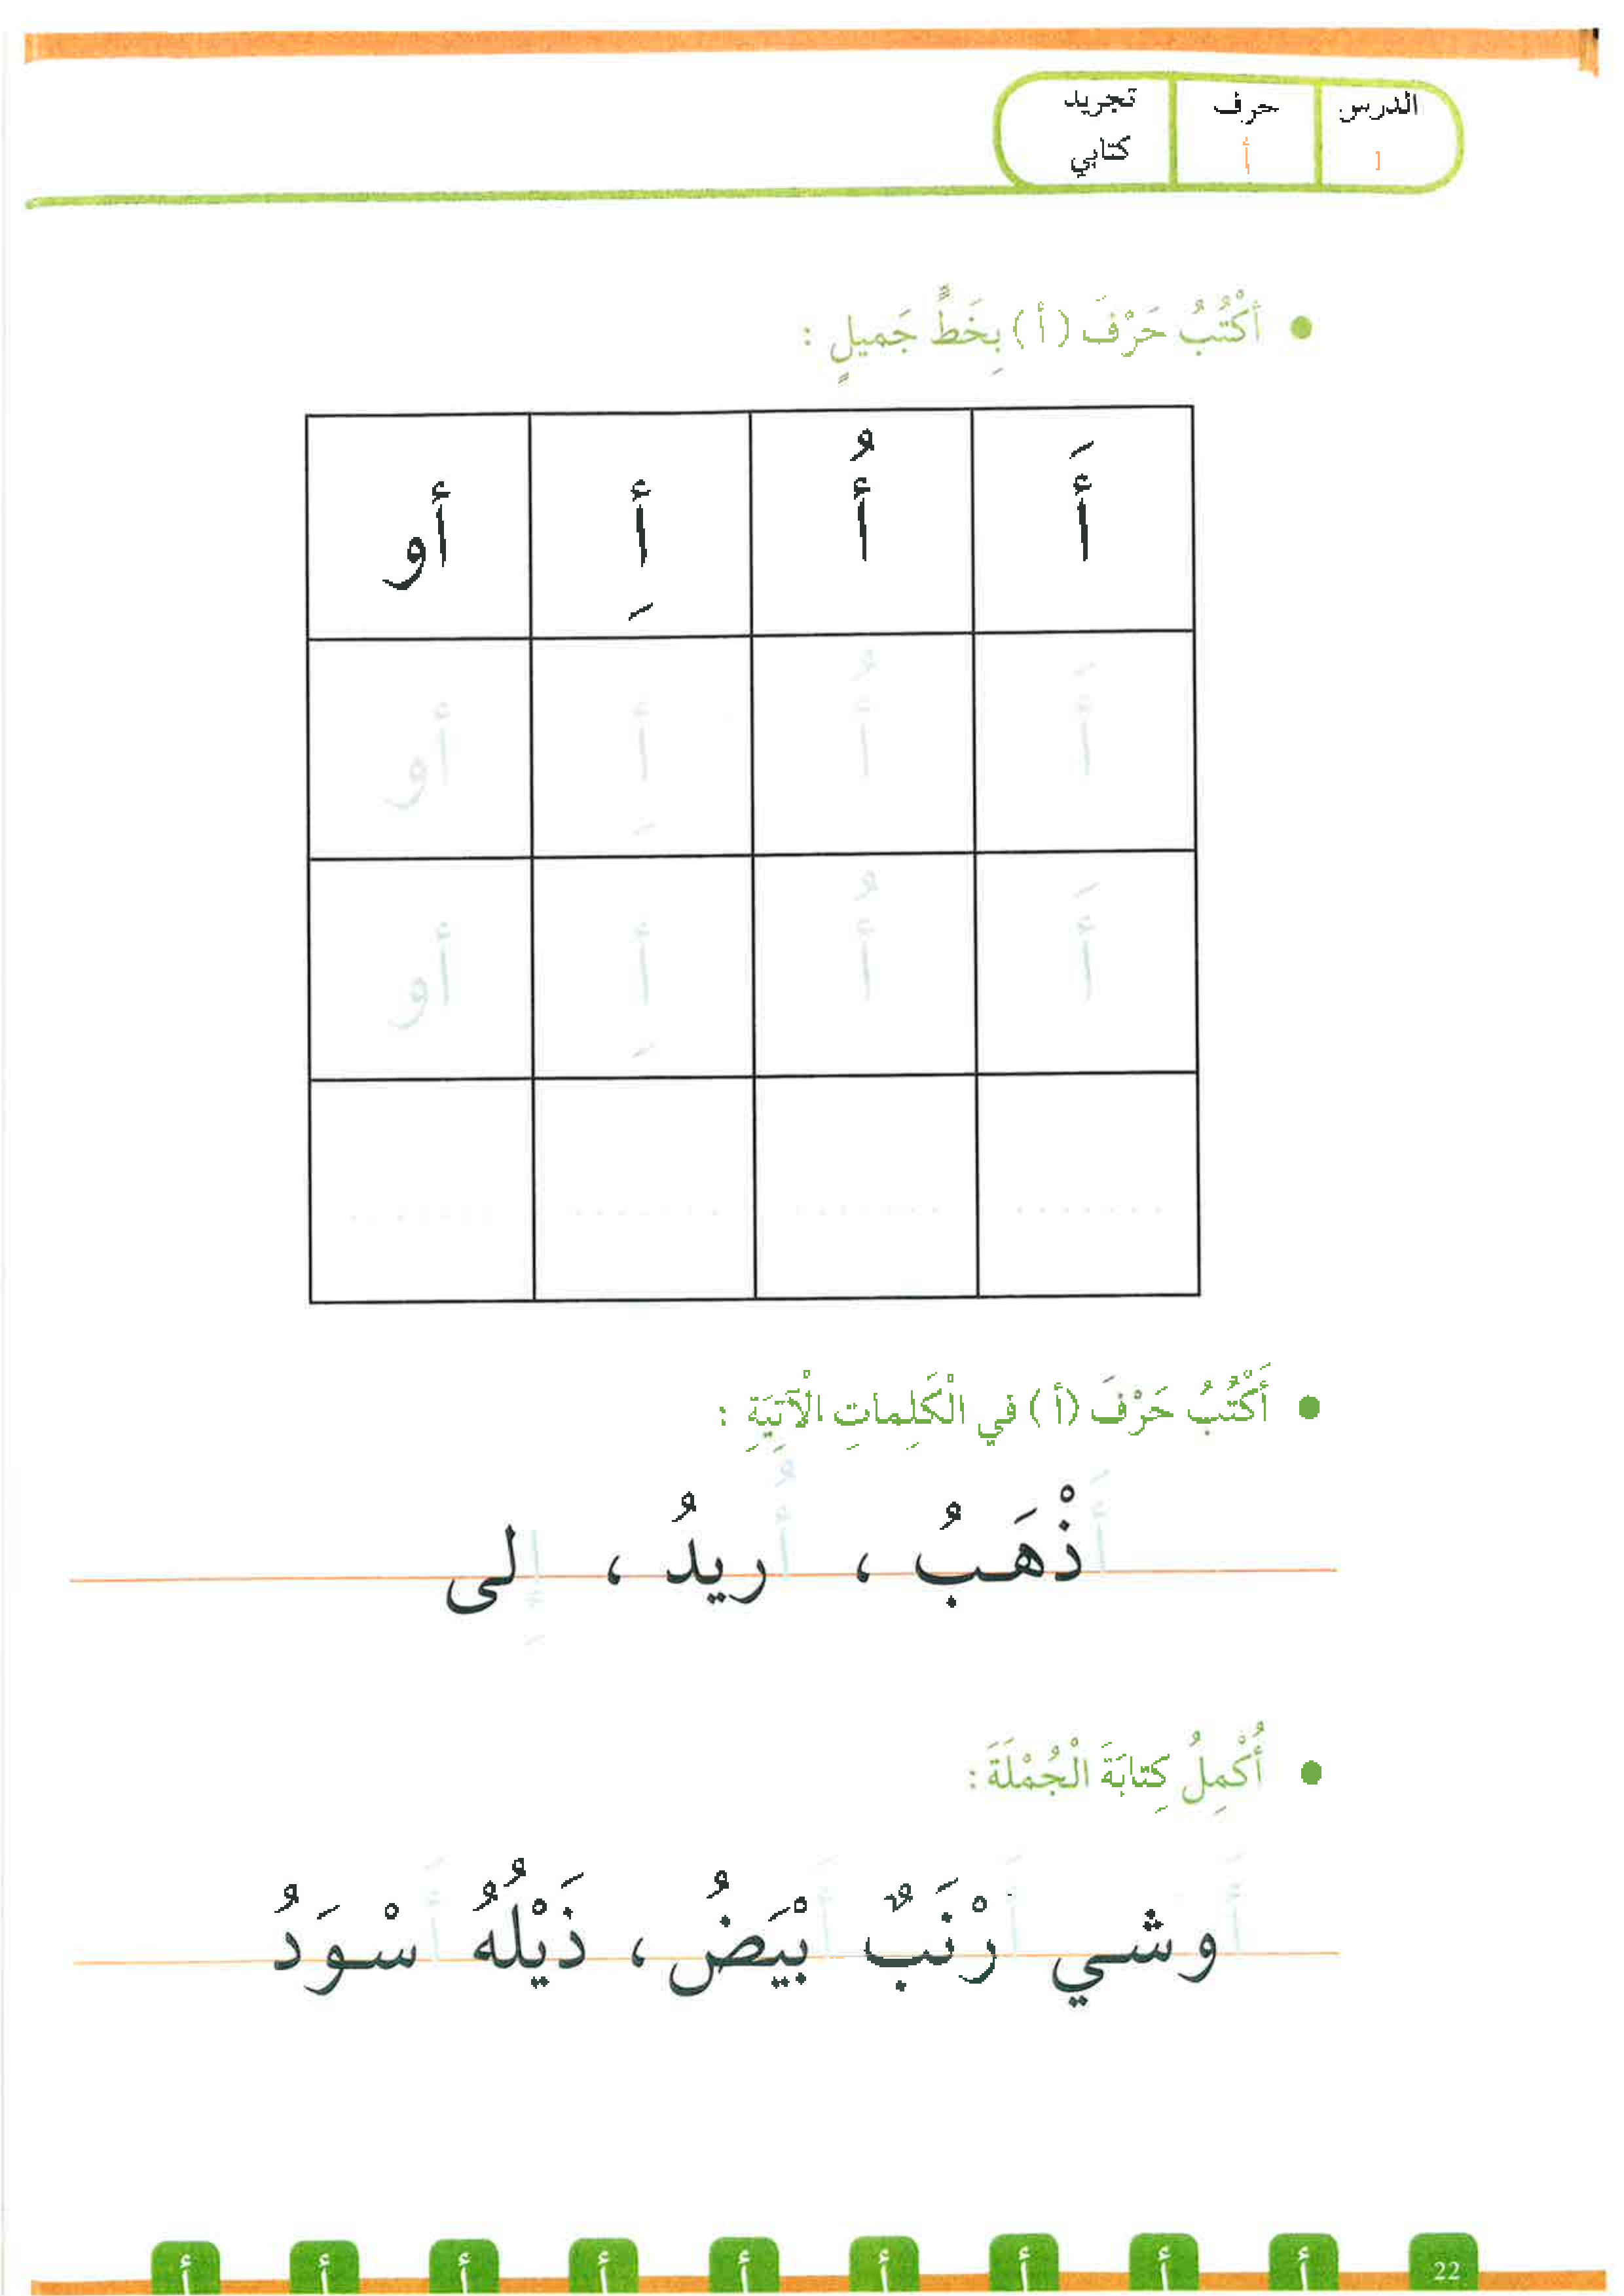 الدرس حرف تجريد
1 أ كتابي
• أَكْتُبُ حَرْفَ (أ) بِخَطٍّ جَميلٍ :
أَ أُ أِ أو
أَ أُ أِ أو
أَ أُ أِ أو
....... ....... ....... .......
• أَكْتُبُ حَرْفَ (أ) في الْكَلِماتِ الْآتِيَةِ :
أَذْهَبُ ، أُريدُ ، إِلى
• أُكْمِلُ كِتابَةَ الْجُمْلَةَ :
أَوشي أَرْنَبٌ أَبْيَضُ ، ذَيْلُهُ أَسْوَدُ
22 أ أ أ أ أ أ أ أ أ